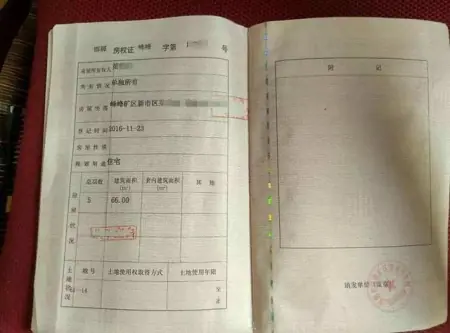 房权证 峰峰 字第 1 号
房屋所有权人
共有情况 单独所有
房屋坐落 峰峰矿区新市区
登记时间 2010-11-23
房屋性质
规划用途 住宅
房屋状况
总层数 建筑面积(m²) 套内建筑面积(m²) 其他
5 66.00
土地状况
地号 土地使用权取得方式 土地使用年限
至 止
附 记
填发单位（盖章）